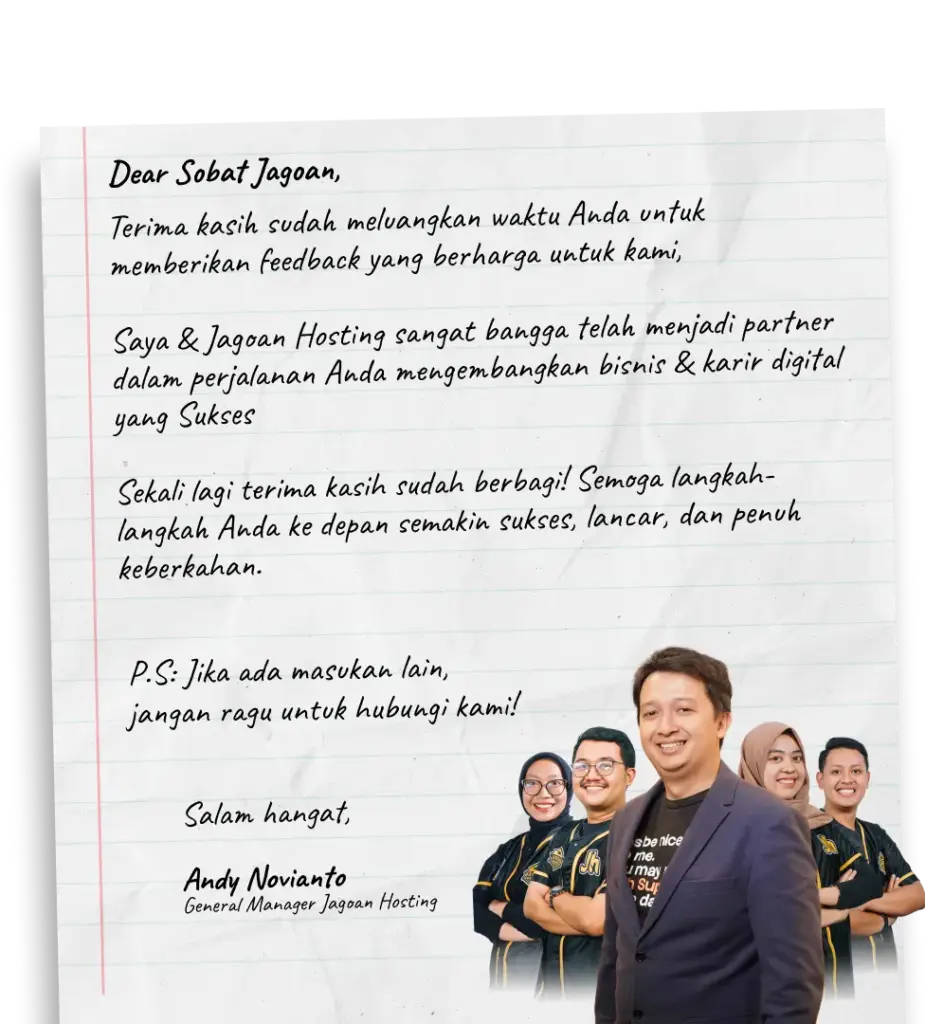 Dear Sobat Jagoan,
Terima kasih sudah meluangkan waktu Anda untuk
memberikan feedback yang berharga untuk kami,
Saya & Jagoan Hosting sangat bangga telah menjadi partner
dalam perjalanan Anda mengembangkan bisnis & karir digital
yang Sukses
Sekali lagi terima kasih sudah berbagi! Semoga langkah-
langkah Anda ke depan semakin sukses, lancar, dan penuh
keberkahan.
P.S: Jika ada masukan lain,
jangan ragu untuk hubungi kami!
Salam hangat,
Andy Novianto
General Manager Jagoan Hosting
Jh
be nice
me.
may